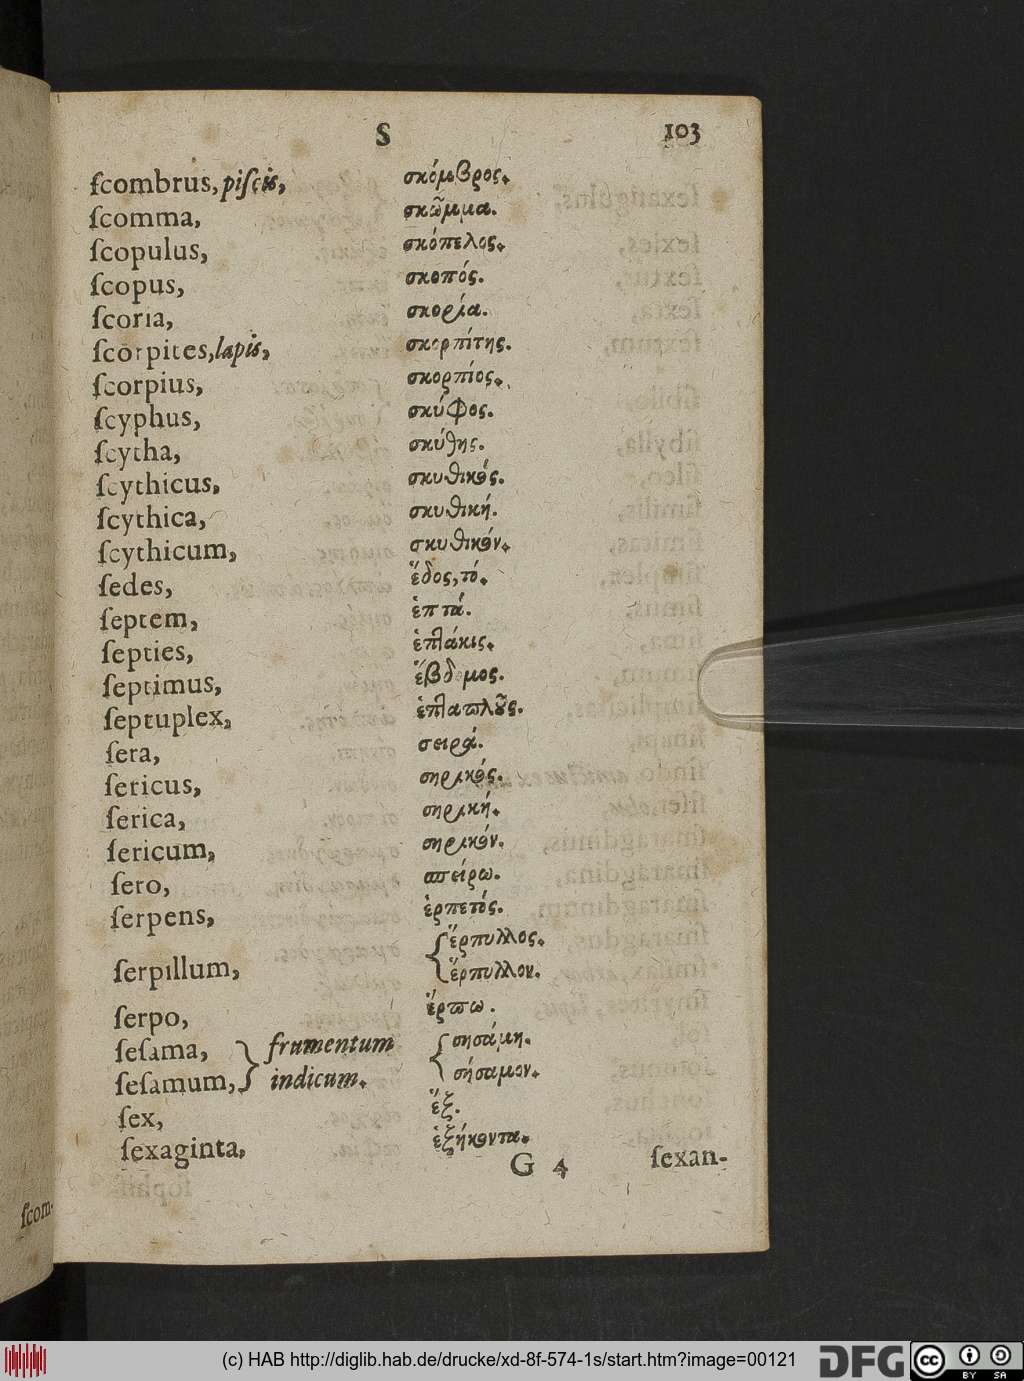 S 103
ſcombrus, piſcis, σκόμβρος.
ſcomma, σκῶμμα.
ſcopulus, σκόπελος.
ſcopus, σκοπός.
ſcoria, σκορία.
ſcorpites, lapis, σκορπίτης.
ſcorpius, σκορπίος.
ſcyphus, σκύφος.
ſcytha, σκύθης.
ſcythicus, σκυθικός.
ſcythica, σκυθική.
ſcythicum, σκυθικόν.
ſedes, ἕδος, τό.
ſeptem, ἑπτά.
ſepties, ἑπτάκις.
ſeptimus, ἕβδομος.
ſeptuplex, ἑπταπλοῦς.
ſera, σειρά.
ſericus, σηρικός.
ſerica, σηρική.
ſericum, σηρικόν.
ſero, σπείρω.
ſerpens, ἑρπετός.
ſerpillum, { ἕρπυλλος.
ἕρπυλλον.
ſerpo, ἕρπω.
ſeſama, } frumentum { σησάμη.
ſeſamum, indicum. σήσαμον.
ſex, ἕξ.
ſexaginta, ἑξήκοντα.
G 4 ſexan-
ſcom-
(c) HAB http://diglib.hab.de/drucke/xd-8f-574-1s/start.htm?image=00121
DFG
cc BY SA